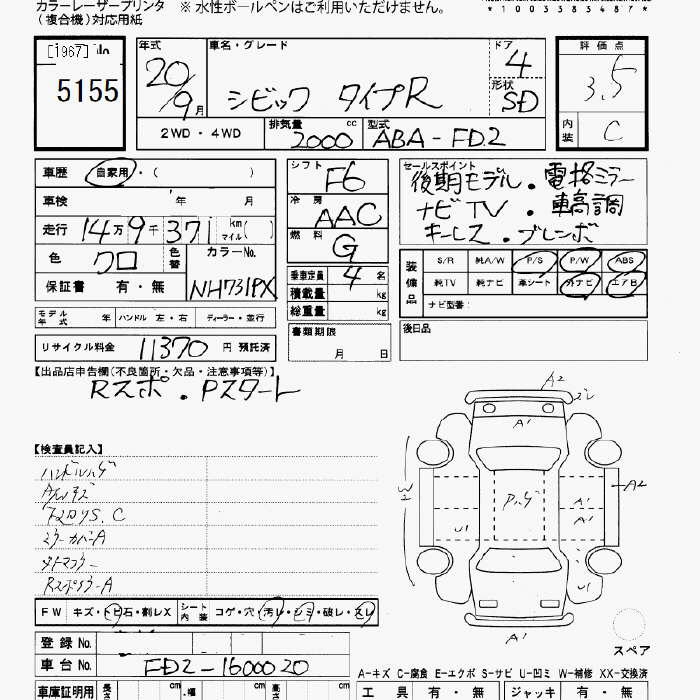 カラーレーザープリンタ ※ 水性ボールペンはご利用いただけません。
（複合機）対応用紙 *1003383487*
[1967] No
5155
年式 車名・グレード ドア 評価点
20/9月 シビック タイプR 4 3.5
形状 SD
2WD・4WD 排気量 2000 cc 型式 ABA-FD2 内装 C
車歴 自家用・（ ）
車検 年 月
走行 14万9千371 km（マイル）
色 クロ 色替 カラーNo.
保証書 有・無 NH731PX
モデル年式 年 ハンドル 左・右 ディーラー・並行
リサイクル料金 11370 円 預託済
シフト F6
冷房 AAC
燃料 G
乗車定員 4 名
積載量 kg
総重量 kg
書類期限
月 日
セールスポイント
後期モデル・電格ミラー
ナビTV・車高調
キーレス・ブレンボ
装備品 S/R 純A/W P/S P/W ABS
純TV 純ナビ 革シート 外ナビ エアB
ナビ型番：
後日品
【出品店申告欄（不良箇所・欠品・注意事項等）】
Rスポ・Pスタート
【検査員記入】
ハンドルハゲ
A/Wキズ
ミラーカバーA
マフラー
RスポイラーA
A2
A1
A2
A1
A1
U1
U1
A1
W
FW キズ・トビ石・割レX シート内装 コゲ・穴・汚レ・シミ・破レ・スレ
登録 No.
車台 No. FD2-1600020
車庫証明用 長さ cm ・幅 cm 高さ cm
スペア
A-キズ C-腐食 E-エクボ S-サビ U-凹ミ W-補修 XX-交換済
工具 有・無 ジャッキ 有・無